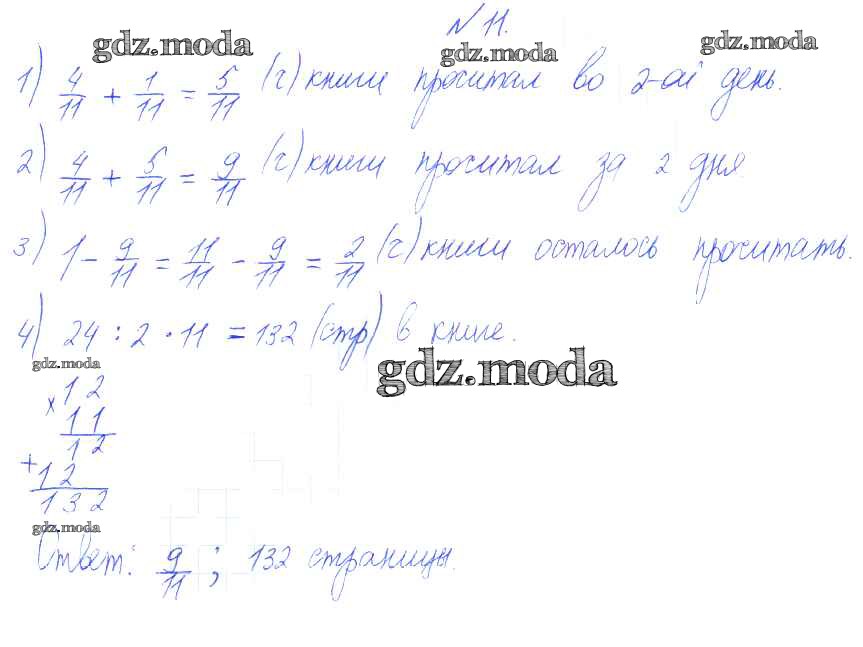 № 11.
gdz.moda gdz.moda gdz.moda
1) 4/11 + 1/11 = 5/11 (ч) книги прочитал во 2-ой день.
2) 4/11 + 5/11 = 9/11 (ч) книги прочитал за 2 дня.
3) 1 - 9/11 = 11/11 - 9/11 = 2/11 (ч) книги осталось прочитать.
4) 24 : 2 · 11 = 132 (стр) в книге.
gdz.moda gdz.moda
× 12
11
12
+ 12
132
gdz.moda
Ответ: 9/11 ; 132 страницы.